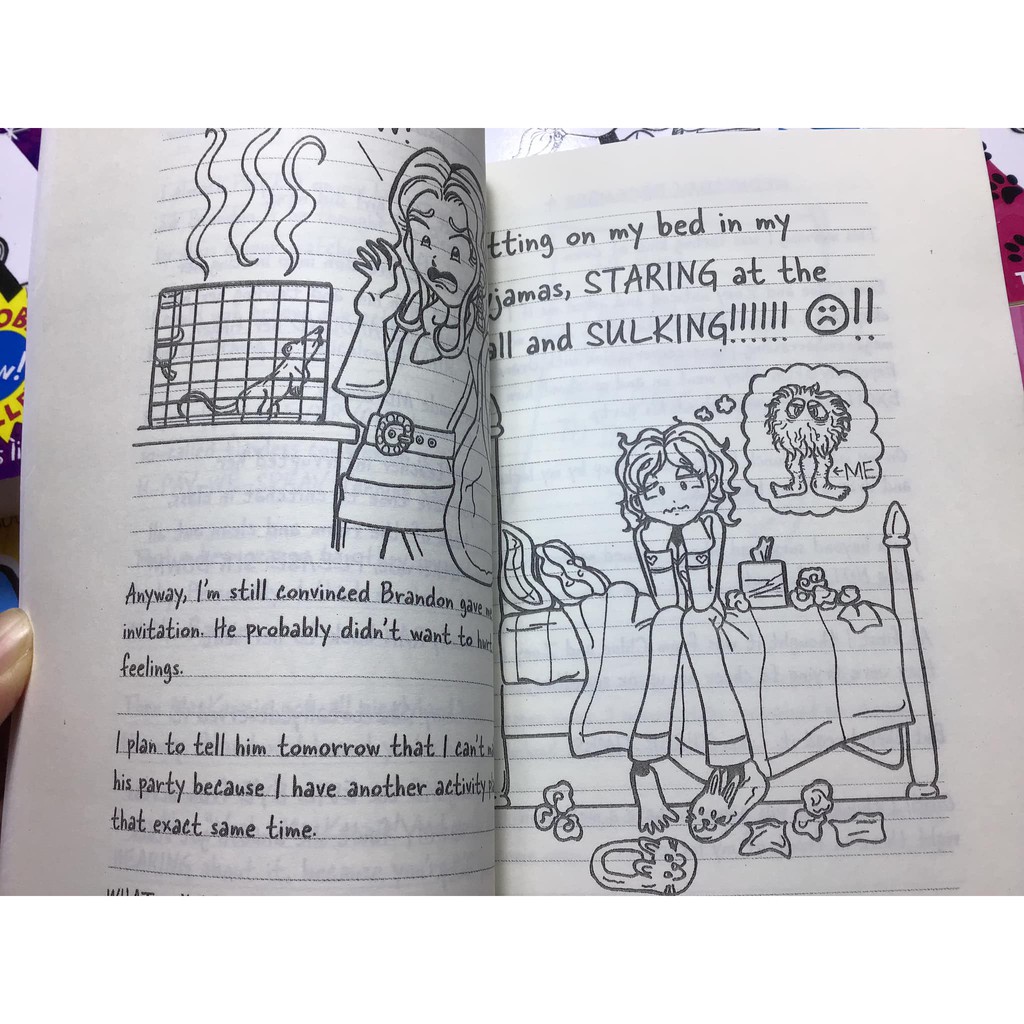 Anyway, I'm still convinced Brandon gave
invitation. He probably didn't want to hurt
feelings.
I plan to tell him tomorrow that I can't
his party because I have another activity
that exact same time.
WHAT
tting on my bed in my
jamas, STARING at the
all and SULKING!!!!!! ☹!!
←ME